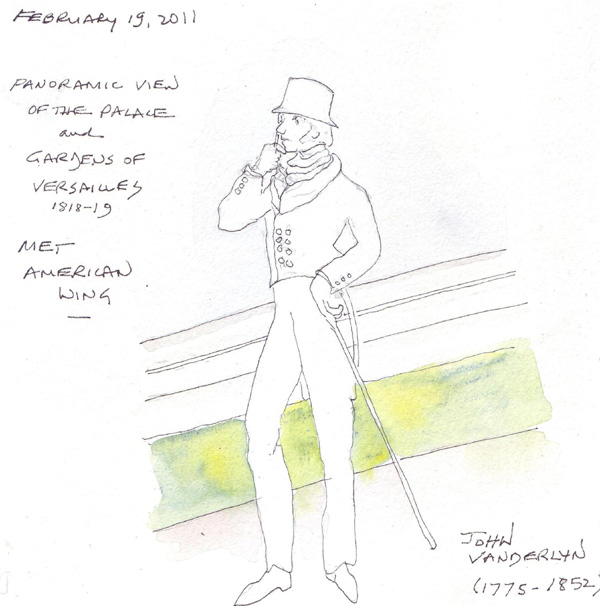 FEBRUARY 19, 2011
PANORAMIC VIEW
OF THE PALACE
and
GARDENS OF
VERSAILLES
1818-19
MET
AMERICAN
WING
JOHN
VANDERLYN
(1775-1852)